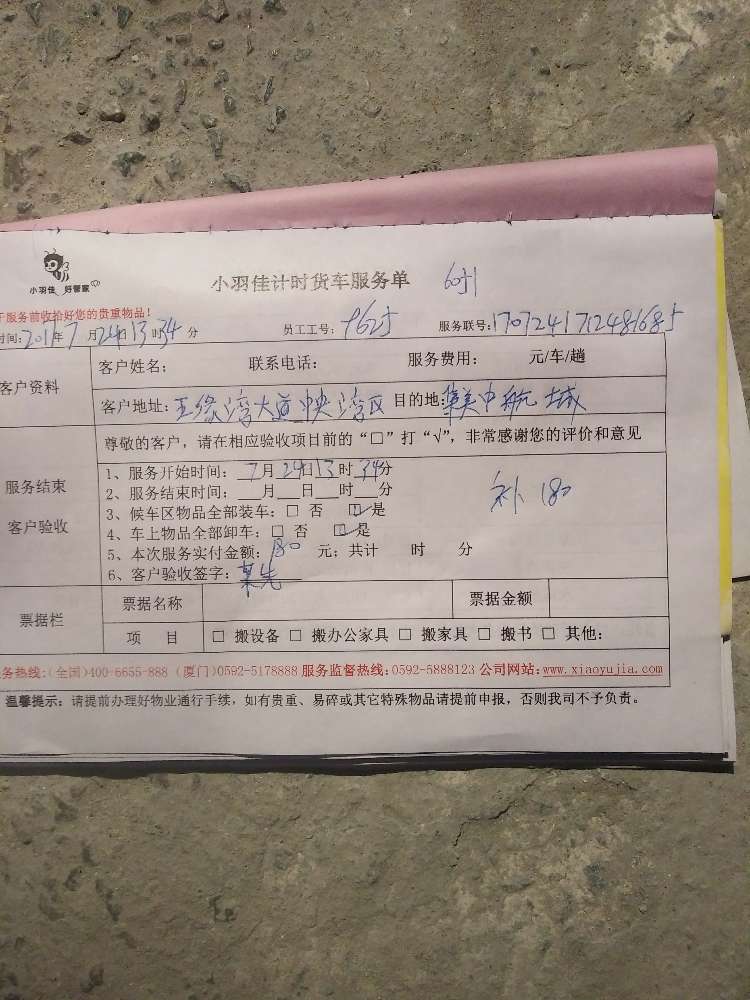 小羽佳计时货车服务单
小羽佳 好管家
于服务前收拾好您的贵重物品!
时间:2017年7月24日13时34分 员工工号: 服务联号:17072417124816845
客户资料
客户姓名: 联系电话: 服务费用: 元/车/趟
客户地址:五缘湾大道中央湾区 目的地:集美中航城
服务结束
客户验收
尊敬的客户，请在相应验收项目前的“□”打“√”，非常感谢您的评价和意见
1、服务开始时间:7月24日13时34分
2、服务结束时间:__月__日__时__分
补 180
3、候车区物品全部装车:□ 否 ☑是
4、车上物品全部卸车:□ 否 ☑是
5、本次服务实付金额:180 元；共计 时 分
6、客户验收签字:
票据栏
票据名称 票据金额
项 目 □ 搬设备 □ 搬办公家具 □ 搬家具 □ 搬书 □ 其他:
务热线:(全国)400-6655-888 (厦门)0592-5178888 服务监督热线:0592-5888123 公司网站:www.xiaoyujia.com
温馨提示: 请提前办理好物业通行手续，如有贵重、易碎或其它特殊物品请提前申报，否则我司不予负责。